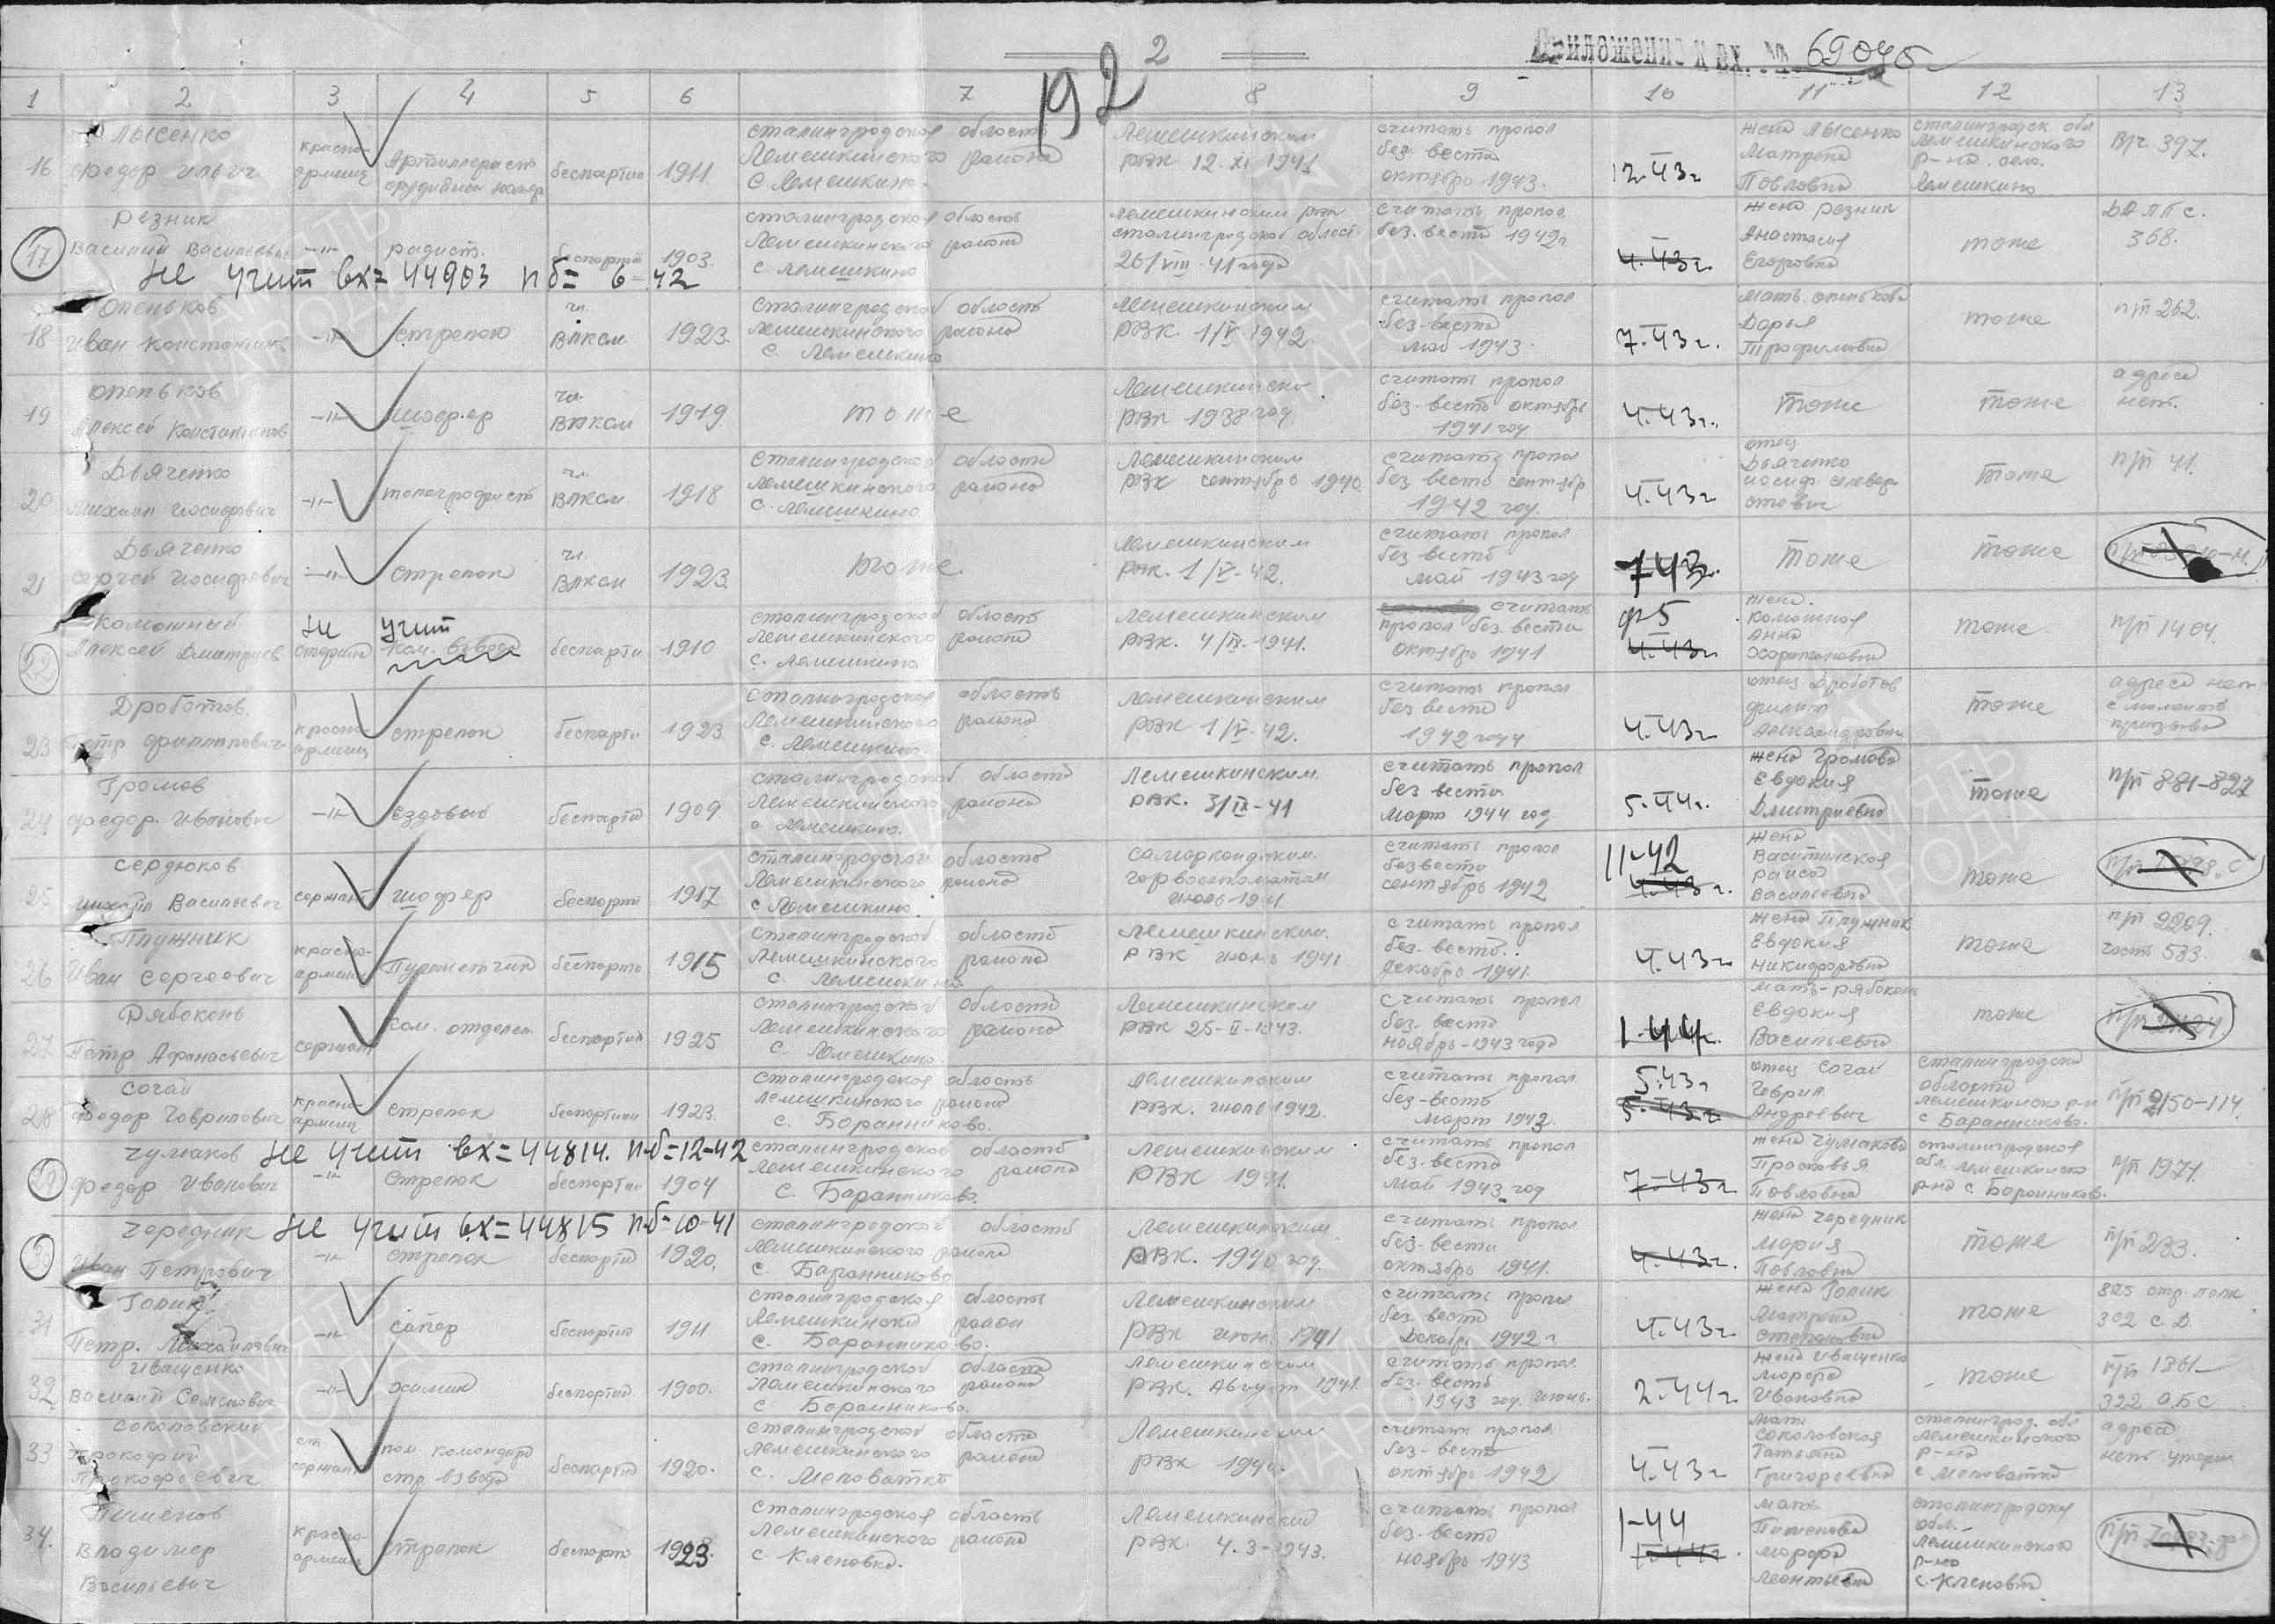 Приложение к вх. № 69046
192 2
1 2 3 4 5 6 7 8 9 10 11 12 13
16 Лысенко Федор Ильич
красно-армеец
беспартий
1911.
сталинградской область
Лемешкинского района
с Лемешкино.
Лемешкинским
рвк 12. XI 1941
считать пропал
без веста
октябрь 1943.
12-43г
жена Лысенко
Матрена
Повловна
сталинградск обл
Лемешкинского
р-на. село.
Лемешкино
в/ч. 397.
17 Резник
Василий Васильевич
—"— радист. беспартий 1903.
не учит вх= 44903 пб= 6-42
сталинградской область
Лемешкинского района
с. Лемешкино
26/VIII-41 года
считать пропал
без. веста 1942г
4.43г.
жена Резник
Анастасия
Егоровна
тоже
368.
18 Опеньков
Иван Константин
—"— стрелок
чл.
ВЛКСМ
1923.
сталинградской область
Лемешкинского района
с. Лемешкино
Лемешкинским
РВК. 1/V 1942
считать пропал
без-веста
май 1943.
7.43г.
мать Опенькова
Дарья
Трофимовна
тоже
п/п 262.
19 Опеньков
Алексей Константинов
—"— шофер
чл.
ВЛКСМ
1919
тоже
Лемешкинско
рвк 1938 год
считать пропал
без-веста октябрь
1941 год
4.43г.
тоже
тоже
адреса
нет.
20 Дьяченко
Михаил Иосифович
—"— топографист
чл.
ВЛКСМ
1918
сталинградской область
Лемешкинского района
с. Лемешкино
Лемешкинским
рвк сентябрь 1940.
считать пропал
без веста сентябр
1942 год.
4.43г
отец
Дьяченко
тоже
п/п 41.
21 Дьяченко
Сергей Иосифович
—"— стрелок
чл.
ВЛКСМ
1923
тоже.
Лемешкинским
рвк. 1/V-42.
считать пропал
без веста
май 1943 год
7-43г.
тоже
тоже
22 Комотный
Алексей Дмитриев
не учит
ком. взвода
беспарти 1910
сталинградской область
Лемешкинского района
с. Лемешкино
Лемешкинским
РВК. 4/IX-1941.
считать
пропал без вести
октябрь 1941
ф5
4.43г
жена.
Анна
Харитоновна
тоже
п/п 1404.
23 Дроботов.
Петр Филиппович
красно армеец
стрелок
беспарти
1923
сталинградская область
Лемешкинского района
с. Лемешкино.
Лемешкинским
РВК 1/V-42.
считать пропал
без веста
1942 году
4.43г
отец Дроботов
Филипп
Александрович
тоже
адреса нет
с момента
призыва
24 Громов
Федор. Иванович
—"— ездовой
беспартий
1909
сталинградской область
Лемешкинского района
с Лемешкино.
Лемешкинским.
рвк. 3/IX-41
считать пропал
без вести
март 1944 год
5.44г.
жена Громова
Евдокия
Дмитриевна
тоже
п/п 881-827
25 Сердюков
Михаил Васильевич
сержант
шофер
беспартий
1917
сталинградской область
Лемешкинского района
с Лемешкино.
Самаркандским.
горвоенкоматом
считать пропал
безвести
сентябрь 1942
11-42
4.43г.
жена
Раиса
Васильевна
тоже
26 Плужник
Иван Сергеевич
красно-армеец
Пулеметчик
беспартий
1915
сталинградской область
Лемешкинского района
с. Лемешкино.
Лемешкинским.
РВК июль 1941
считать пропал
без-веста.
декабрь 1941.
4.43г
жена Плужник
Евдокия
Никифоровна
тоже
п/п 2209.
часть 583.
27 Рябоконь
Петр Афанасьевич
сержант
ком. отделен
беспартий
1925
сталинградской область
Лемешкинского района
с. Лемешкино.
Лемешкинском
РВК 25-II-1943.
считать пропал
без-веста
ноябрь-1943 года
1-44г.
мать-Рябоконь
Евдокия
Васильевна
тоже
28 Согай
Федор Гаврилович
красно-армеец
стрелок
беспартийн
1923.
сталинградская область
Лемешкинского района
с. Баранниково.
Лемешкинским
РВК. июль 1942.
считать пропал
без-веста
март 1943.
5.43г
5.43г
отец Согай
Гаврил
Андреевич
сталинградско
область
Лемешкинско р-н
с Баранниково.
п/п 2150-114.
29 Чумаков
Федор Иванович
не учит вх=44814. п-б=12-42
—"— стрелок
беспартий
1904
сталинградской область
Лемешкинского района
с. Баранниково.
Лемешкинским
РВК 1941.
считать пропал
без-веста
май 1943 год
7-43г
жена Чумакова
Прасковья
Повловна
сталинградская
обл Лемешкинско
рна с. Баранников.
п/п 1971.
30 Чередник
Иван Петрович
не учит вх=44815 п-б-10-41
—"— стрелок
беспартий
1920.
сталинградской область
Лемешкинского района
с. Баранниково
Лемешкинским.
РВК. 1940 год.
считать пропал
без-вести
октябрь 1941.
4.43г.
жена Чередник
Мария
Повловна
тоже
п/п 233.
31 Голик
Петр. Михайлович
—"— сапер
беспартий
1911
сталинградская область
Лемешкинский район
с. Баранниково.
Лемешкинским
РВК июн. 1941
считать пропал
без веста
декабрь 1942г.
4.43г
жена Голик
Матрена
Степановна
тоже
825 стр. полк
302 с Д
32. Иващенко
Василий Семенович
—"— химик
беспартий
1900.
сталинградской область
Лемешкинского района
с Баранниково.
Лемешкинским
РВК. Август 1941.
считать пропал.
без-веста
1943 год июнь.
2.44г
жена Иващенко
Марфа
Ивановна
тоже
п/п 1361-
322 ОБС
33 Соколовский
Прокофий
Прокофьевич
ст
сержант
пом командира
стр. взвода
беспартий
1920.
сталинградской область
Лемешкинского района
с. Меловатка
Лемешкинским
РВК 1940.
считать пропал
без-веста
октябрь 1942
4.43г
мать
Соколовская
Татьяна
Григорьевна
сталинград. обл
Лемешкинского
р-на
с Меловатка
адреса
нет утерян
34. Пименов
Владимир
Васильевич
красно-армеец
стрелок
беспартий
1923.
сталинградская область
Лемешкинского района
с Кленовка.
Лемешкинский
РВК. 4.3-1943.
считать пропал
без-веста
ноябрь 1943
1-44
мать
Пименова
Марфа
Леонтьевна
сталинградску
обл.
Лемешкинского
р-на
с. Кленовка